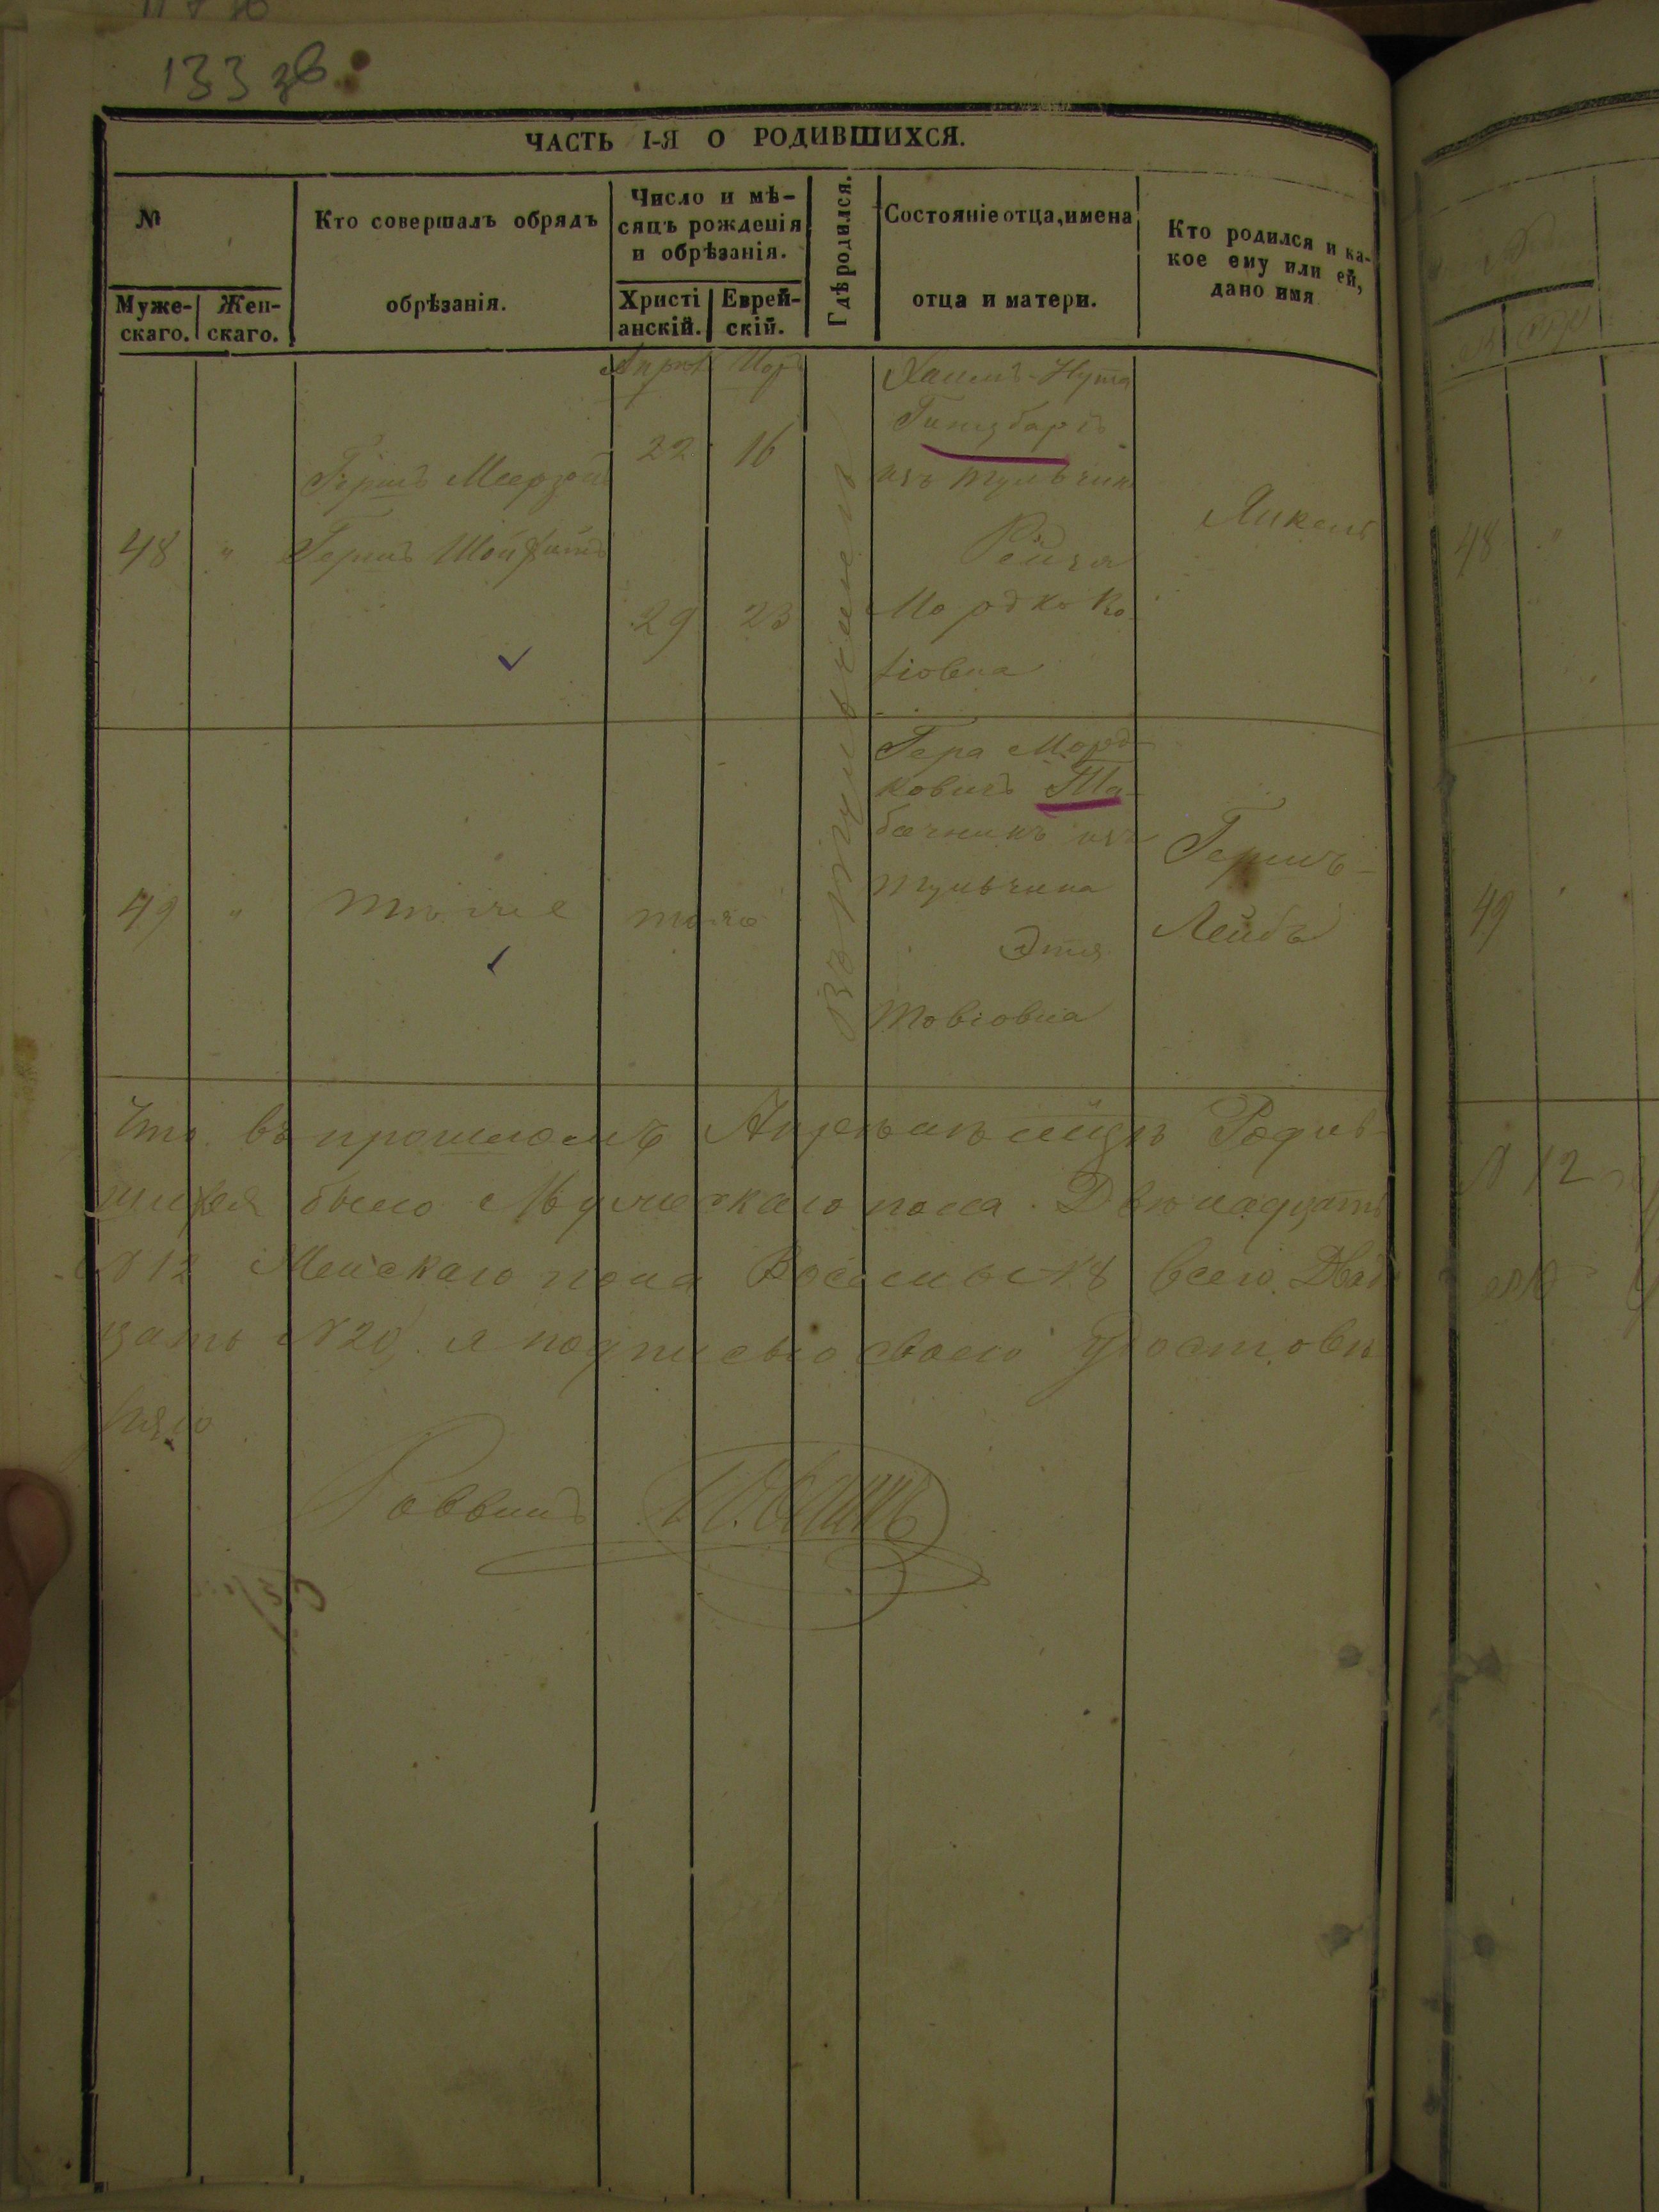 133 зв
ЧАСТЬ I-Я О РОДИВШИХСЯ.
№
Муже-
скаго.
Жен-
скаго.
Кто совершалъ обрядъ
обрѣзанія.
Число и мѣ-
сяцъ рожденія
и обрѣзанія.
Христі
анскій.
Еврей-
скій.
Гдѣ родился.
Состояніе отца, имена
отца и матери.
Кто родился и ка-
кое ему или ей,
дано имя
48
"
Гершъ
Гершъ
22
16
29
23
Въ Тульчинѣ
Хаимъ-Нута
Гинзбаргъ
изъ Тульчина
Рейзя
Мордкова
Янкель
49
"
тоже
тоже
Гера Морд-
ковичъ Та-
бачникъ изъ
Тульчина
Этя
Товіовна
Гершъ-
Лейбъ
Что въ прошломъ Апрелѣ мцѣ Родив-
шихся было Мужескаго пола Двѣнадцать
№ 12 Женскаго пола Восемь № 8 всего Двад
цать № 20 я подписью своею Удостовѣ
ряю
Раввинъ
48
"
49
№ 12